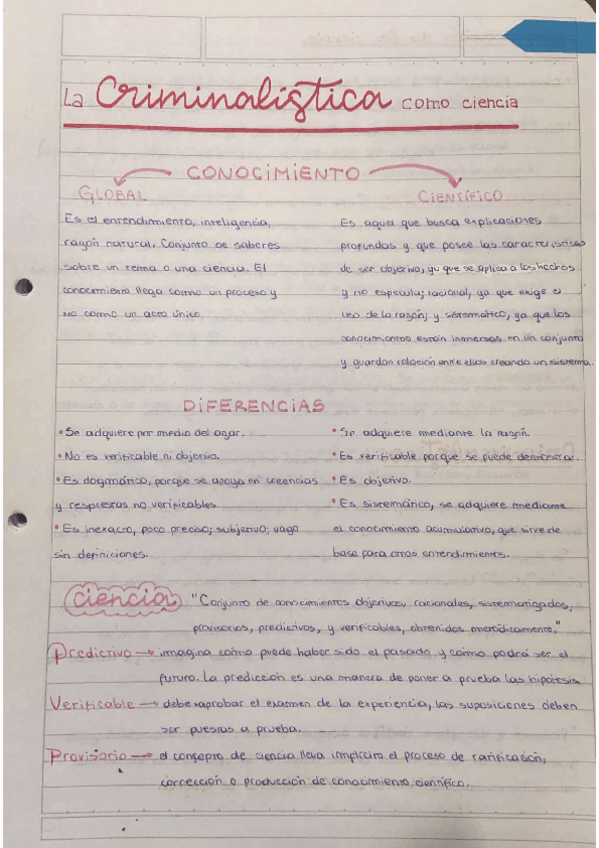 La Criminalística como ciencia
CONOCIMIENTO
GLOBAL
Es el entendimiento, inteligencia,
razón natural. Conjunto de saberes
sobre un tema o una ciencia. El
conocimiento llega como un proceso y
no como un acto único.
CIENTÍFICO
Es aquel que busca explicaciones
profundas y que posee las características
de ser objetivo, ya que se aplica a los hechos
y no especula; racional, ya que exige el
uso de la razón; y sistemático, ya que los
conocimientos están inmersos en un conjunto
y guardan relación entre ellos creando un sistema.
DIFERENCIAS
• Se adquiere por medio del azar.
• No es verificable ni objetivo.
• Es dogmático, porque se apoya en creencias
y respuestas no verificables.
• Es inexacto, poco preciso; subjetivo; vago
sin definiciones.
• Se adquiere mediante la razón.
• Es verificable porque se puede demostrar.
• Es objetivo.
• Es sistemático, se adquiere mediante
el conocimiento acumulativo, que sirve de
base para otros entendimientos.
ciencia "Conjunto de conocimientos objetivos, racionales, sistematizados,
provisorios, predictivos, y verificables, obtenidos metódicamente."
Predictivo → imagina como puede haber sido el pasado y como podrá ser el
futuro. La predicción es una manera de poner a prueba las hipótesis.
Verificable → debe aprobar el examen de la experiencia, las suposiciones deben
ser puestas a prueba.
Provisorio → el consepto de ciencia lleva implícito el proceso de ratificación,
corrección o producción de conocimiento científico.